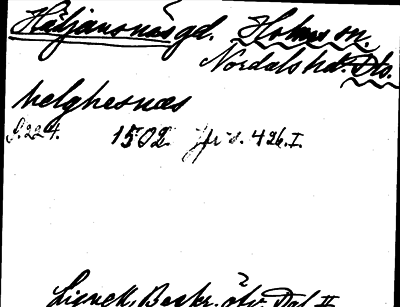 Häljansnäs gd. Holms sn.
Nordals hd. Ds.
helghesnæs
S. 224. 1502. Jfr s. 426. I.
Lignell, Beskr. öfv. Dal II